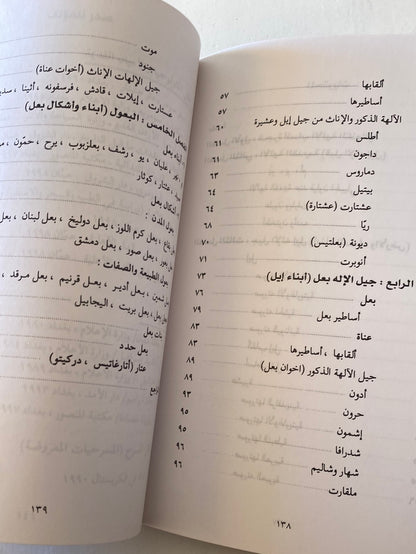 ألقابها
أساطيرها ٥٧
الآلهة الذكور والإناث من جيل إيل وعشيرة ٥٧
أطلس ٦٠
داجون ٦١
دماروس ٦١
بيتيل ٦٣
عشتارت (عشتارة) ٦٤
ريّا ٦٤
ديونة (بعلتيس) ٦٨
أنوبرت ٧٠
الرابع : جيل الإله بعل (أبناء إيل) ٧١
بعل ٧٣
أساطير بعل ٧٦
عناة ٧٩
ألقابها ، أساطيرها ٨٣
جيل الآلهة الذكور (اخوان بعل) ٨٣
أدون ٨٩
حرون ٨٩
إشمون ٩٣
شدرافا ٩٥
شهار وشاليم ٩٥
ملقارت ٩٦
٩٦
١٣٨
موت
جنود
جيل الإلهات الإناث (أخوات عناة)
عستارت ، إيلات ، قادش ، قرسفونه ، أثينا ،
الخامس : البعول (أبناء وأشكال بعل)
بعل
، عليان ، يو ، رشف ، بعلزبوب ، يرح ، حمّون ،
، عثتار ، كوثار
بعل
المدن :
بعل كرم اللوز ، بعل دوليخ ، بعل لبنان ، بعل
، بعل صور ، بعل دمشق
الطبيعة والصفات :
، بعل أدير ، بعل قرنيم ، بعل مرقد ،
بعل بريت ، اليجابيل
بعل
بعل حدد
عثار (أتارغاتيس ، دركيتو)
١٣٩